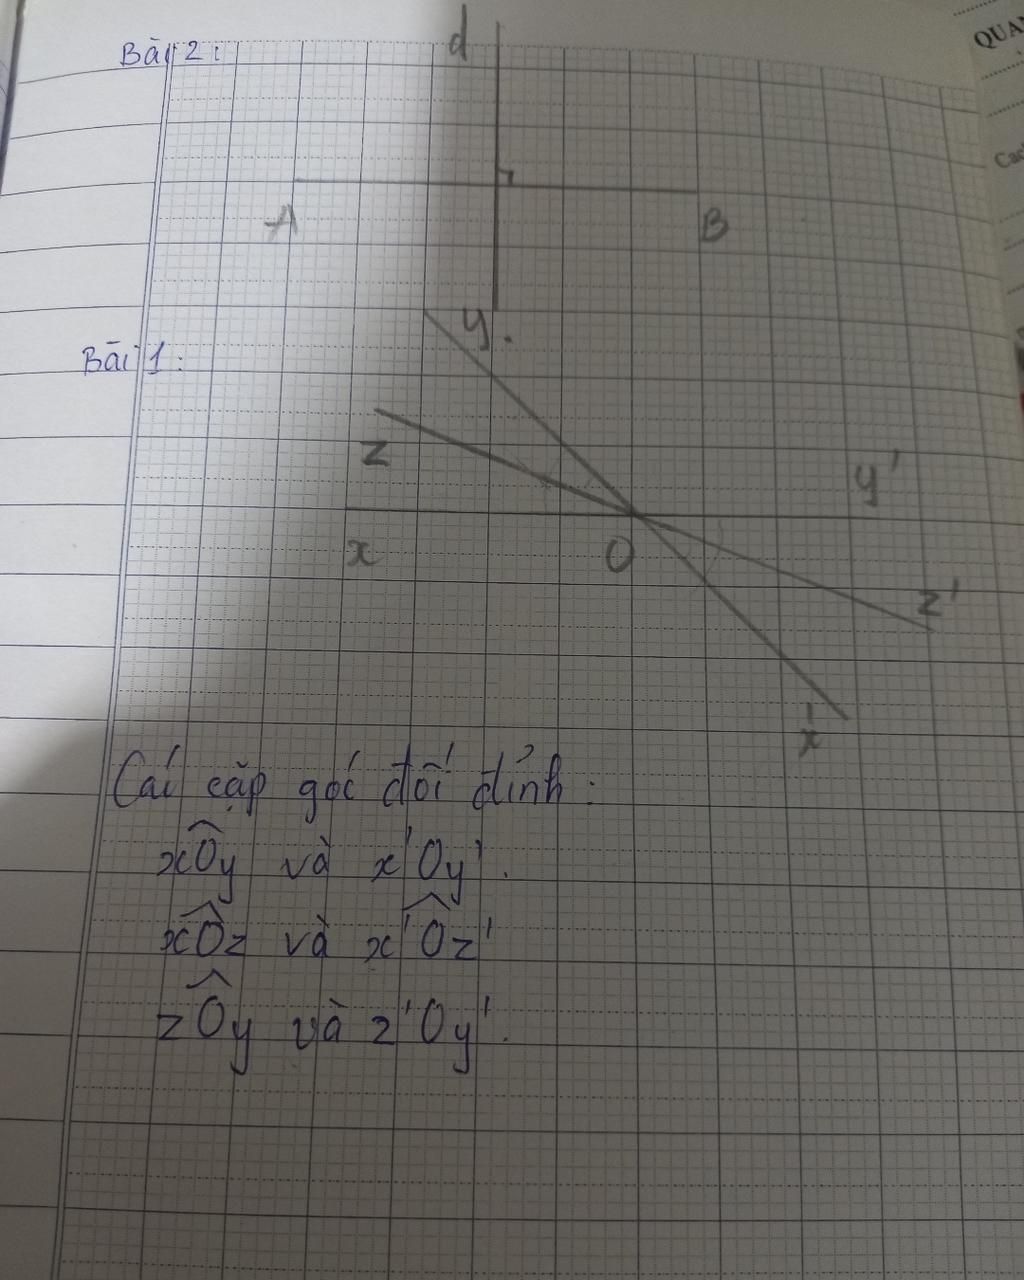 Bài 2:
d
A
B
Bài 1:
y
z
y'
x
O
z'
x'
Các cặp góc đối đỉnh:
xÔy và x'Oy'.
xÔz và x'Ôz'
zÔy và z'Oy'.
QUAN